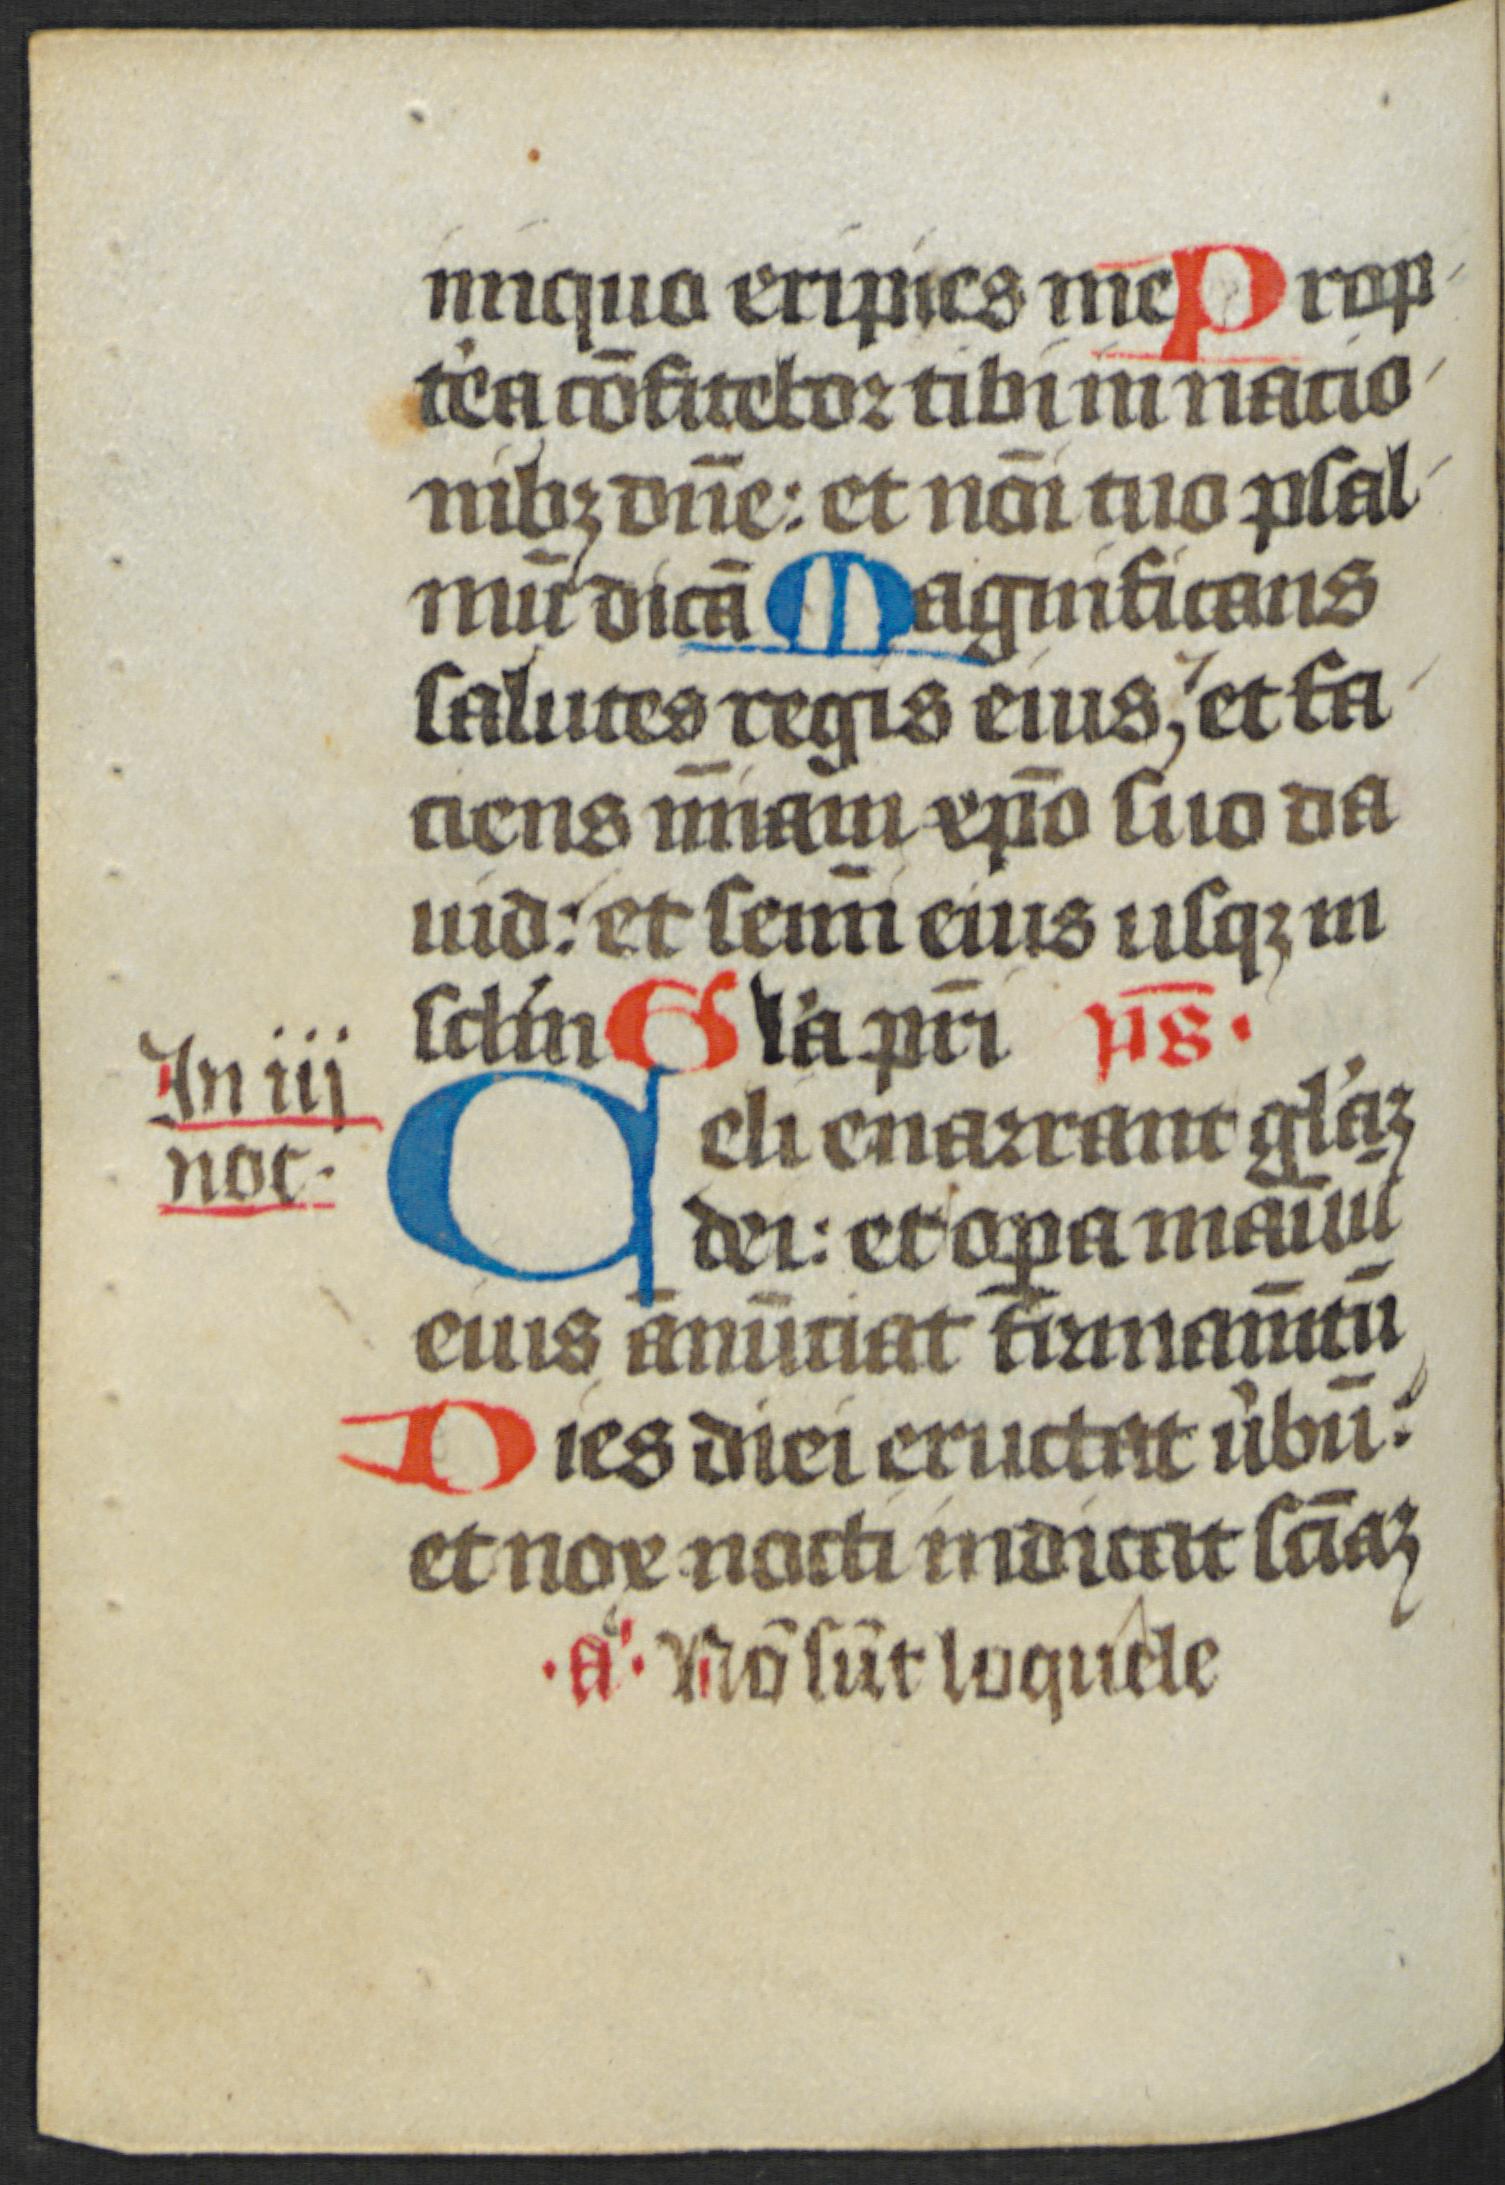 iniquo eripies me Prop
t'ea cōfitebor tibi in nacio
nibꝫ dn̄e: et nōi tuo psal
mū dicā Magnificans
salutes regis eius, et fa
ciens mīam xp̄o suo da
uid: et semī eius usqꝫ in
sclm Gl'a pr̄i ps̄.
In iij
noc.
Celi enarrant gl'aꝫ
dei: et oꝑa manuū
eius ānūtiat firmam̄tū
Dies diei eructat u'bū:
et nox nocti indicat scīaꝫ
.a. Nō sūt loquele